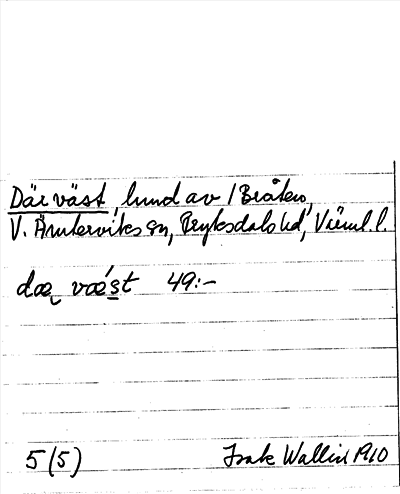 Därväst, lund av /Bråten,
V. Ämterviks sn, Fryksdals hd, Värml. l.
dæ væst 49:-
5(5) Isak Wallin 1910